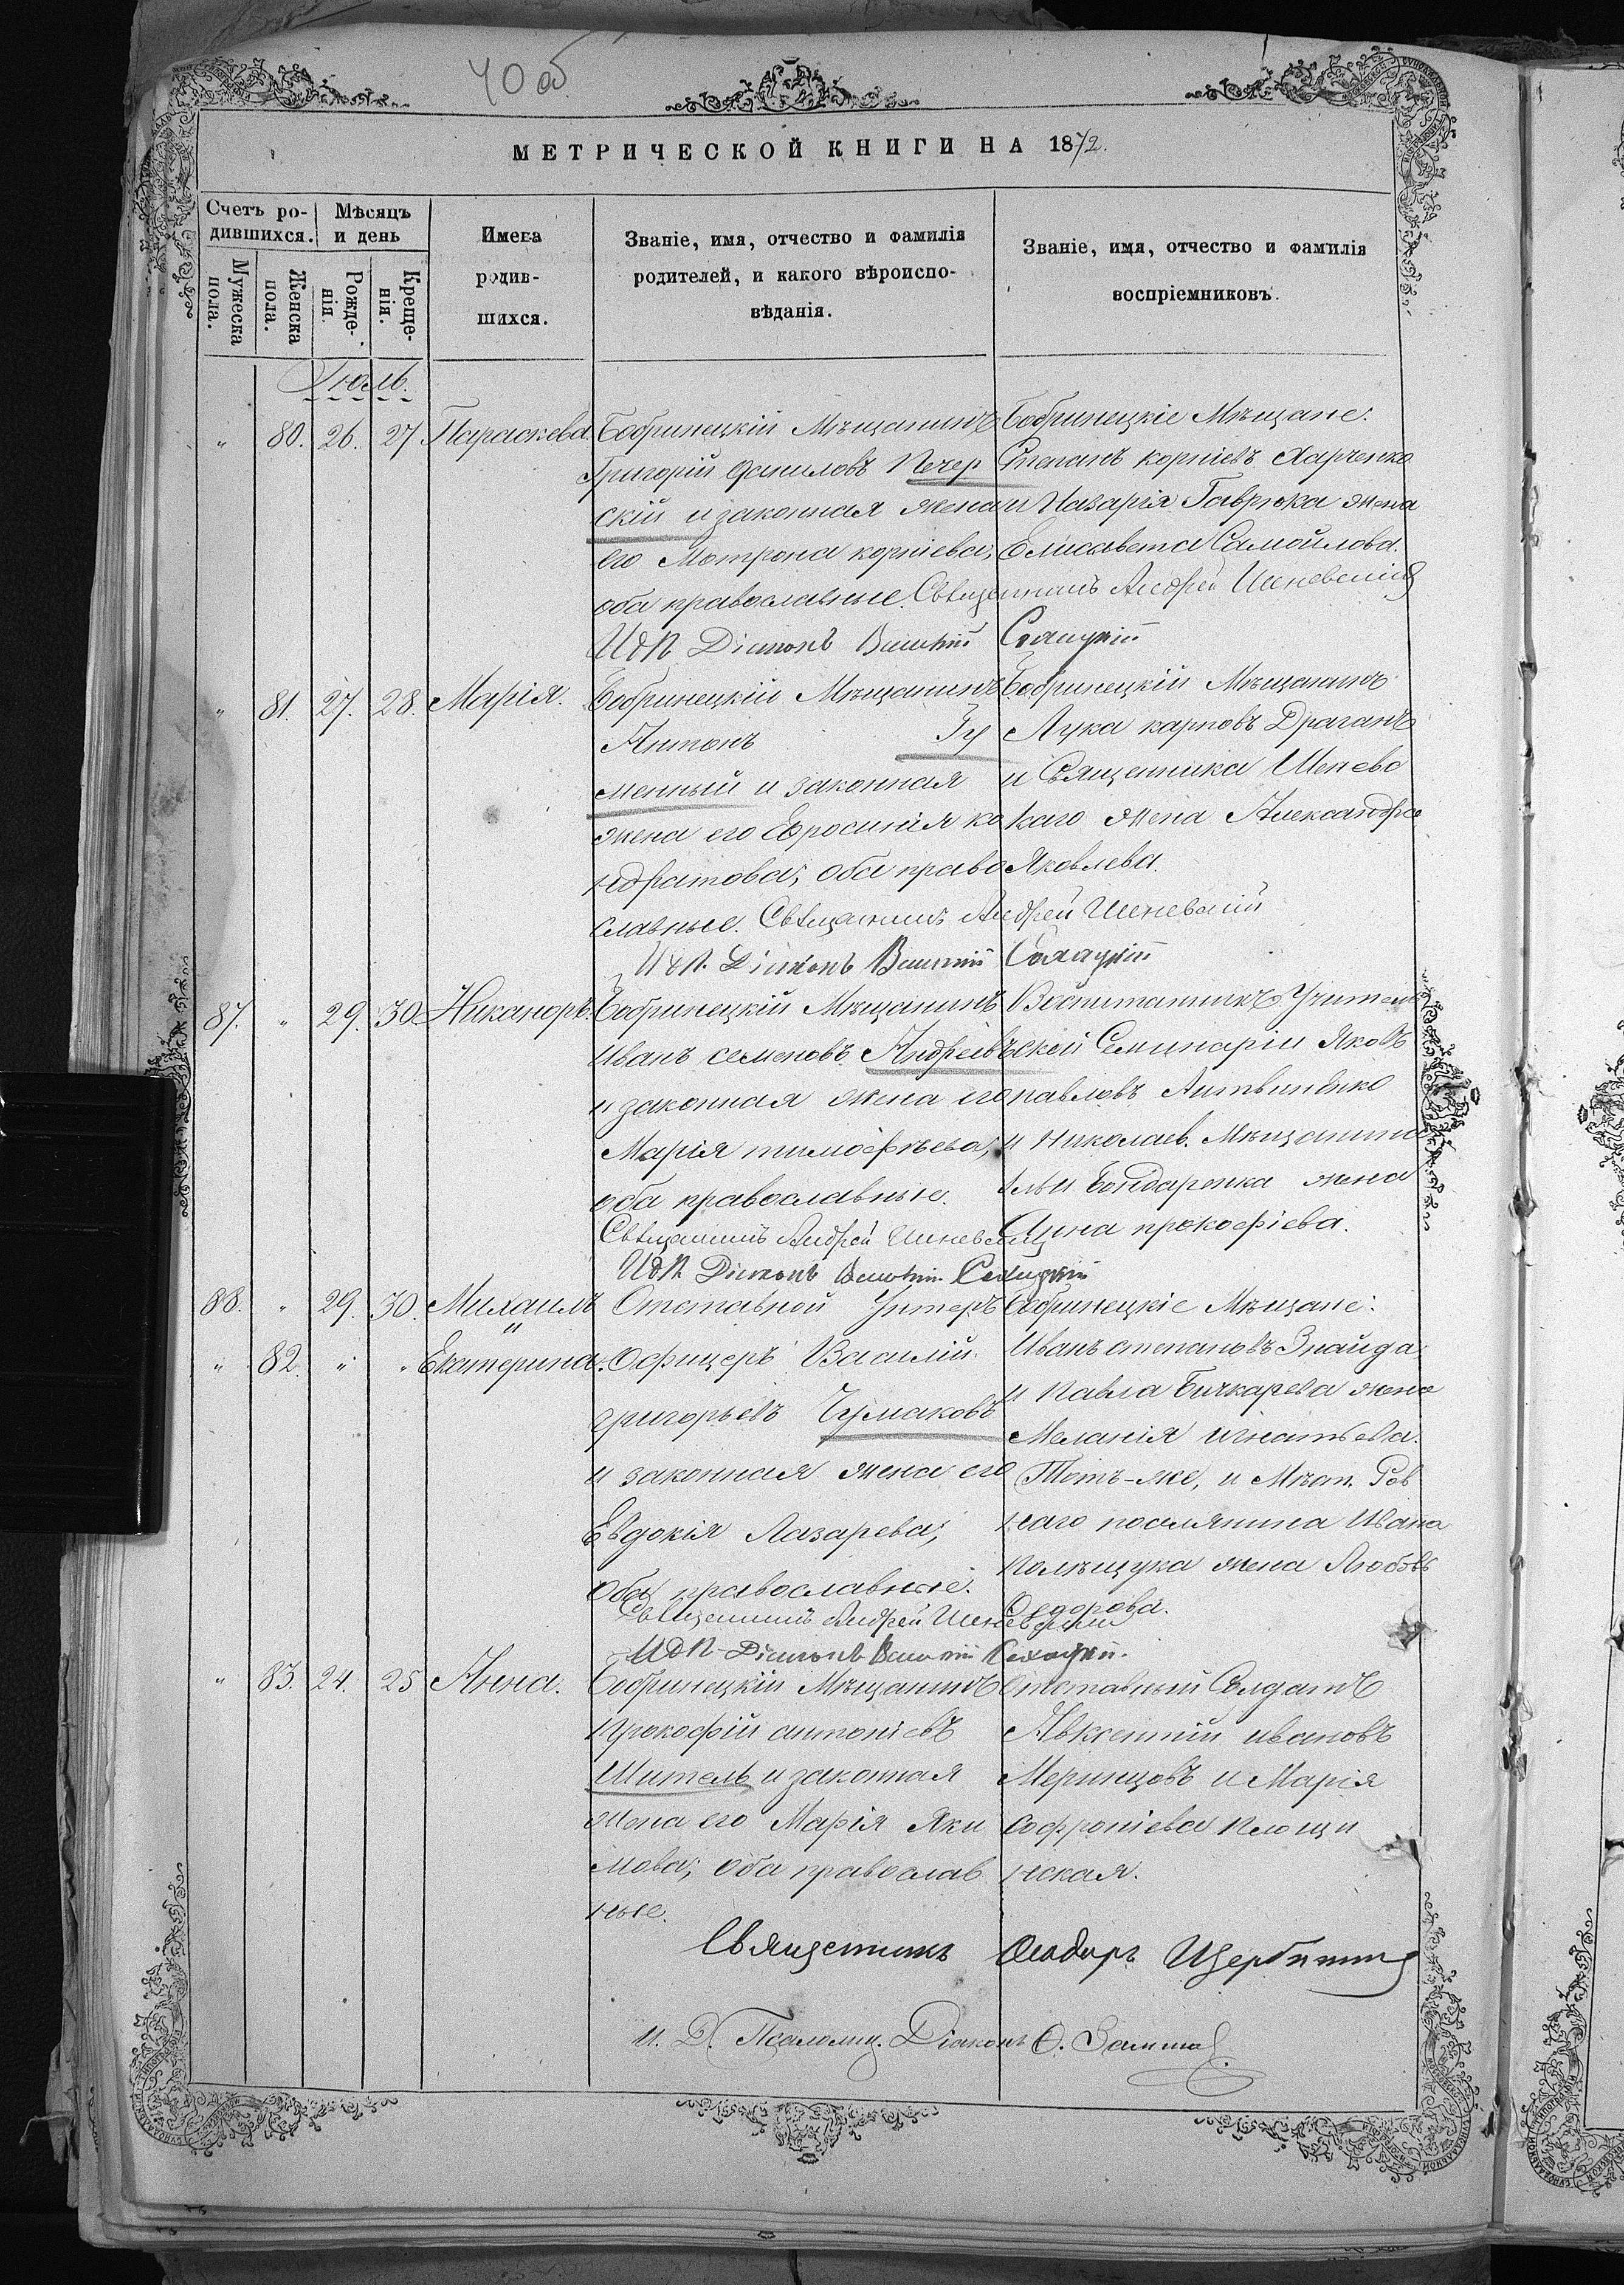 40 об
МЕТРИЧЕСКОЙ КНИГИ НА 1872.
Счетъ ро-
дившихся.
Мѣсяцъ
и день
Мужеска
пола.
Женска
пола.
Рожде-
нія.
Креще-
нія.
Имена
родив-
шихся.
Званіе, имя, отчество и фамилія
родителей, и какого вѣроиспо-
вѣданія.
Званіе, имя, отчество и фамилія
воспріемниковъ.
Іюль.
" 80. 26. 27. Параскева.
Бобринецкій Мѣщанинъ
Григорій Даниловъ Печер
скій и законная жена
его Мотрона корніева;
оба православные. Священникъ Андрей
И д П Діаконъ
Бобринецкіе Мѣщане:
Степанъ корніевъ Харченко
и Назарія Гаврюка жена
Елисавета Самойлова.
" 81. 27. 28. Марія.
Бобринецкій Мѣщанинъ
Антонъ Гу
менный и законная
жена его Ефросинія ко
ндратова; оба право
славные. Священникъ Андрей
И д П. Діаконъ
Бобринецкій Мѣщанинъ
Лука карповъ Драганъ
и Священника Шенево
каго жена Александра
Яковлева.
87. " 29. 30. Никаноръ.
Бобринецкій Мѣщанинъ
Иванъ семеновъ Андреевъ
и законная жена его
Марія тимофѣева;
оба православные.
Священникъ Андрей
И д П Діаконъ
Воспитанникъ Учитель
ской Семинаріи Яковъ
павловъ Литвиненко
и Николаев. Мѣщанина
Ильи Бондаренка жена
Анна прокофіева.
88. " 29. 30. Михаилъ
"
" 82. " " Екатерина.
Отставной Унтеръ
Офицеръ Василій
григорьевъ Чумаковъ
и законная жена его
Евдокія Лазарева;
оба православные.
Священникъ Андрей
И д П Діаконъ
Бобринецкіе Мѣщане:
Иванъ степановъ Знайда
и Павла Бичкарева жена
Меланія игнатьева.
Тотъ-же, и Мѣст. Ров
наго поселянина Ивана
Полѣщука жена Любовь
Сидорова.
" 83. 24. 25 Анна.
Бобринецкій Мѣщанинъ
прокофій антоніевъ
Шитель и законная
жена его Марія Яки
мова; оба православ
ные.
Отставный Солдатъ
Авксентій ивановъ
Меринцовъ и Марія
софроніева Площи
нская.
Священникъ Ѳеодоръ
И. Д. Псаломщ. Діаконъ